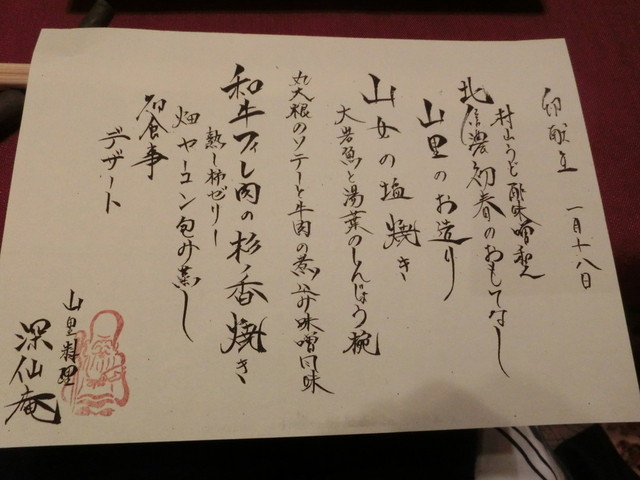 御献立　一月十八日
村山うど酢味噌和え
北信濃初春のおもてなし
山里のお造り
山女の塩焼き
大岩魚と湯葉のしんじょう椀
丸大根のソテーと牛肉の煮込み味噌風味
和牛フィレ肉の杉ノ香焼き
熟し柿ゼリー
畑ヤーコン包み蒸し
御食事
デザート
山里料理
深仙庵